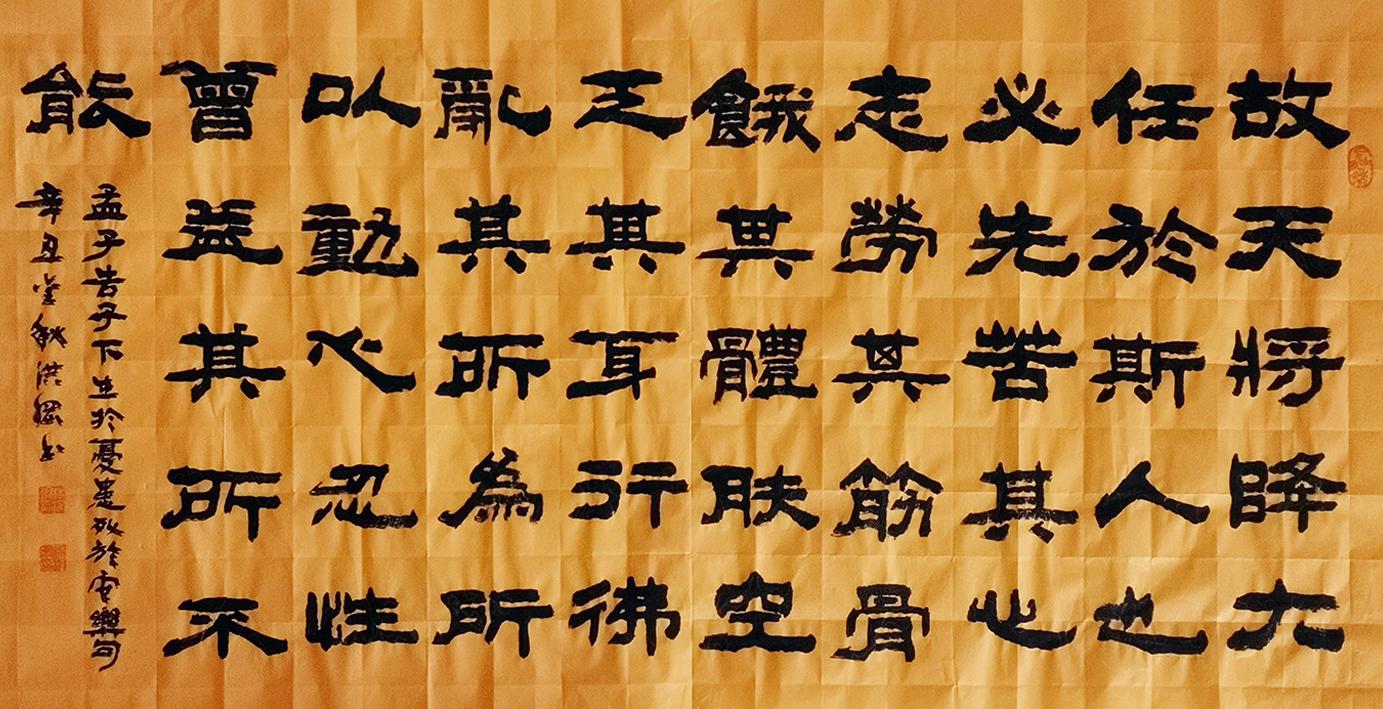 故天將降大
任於斯人也
必先苦其心
志勞其筋骨
餓其體肤空
乏其身行彿
亂其所為所
以動心忍性
曾益其所不
能
孟子告子下生於憂患死於安樂句
辛丑金秋洪书